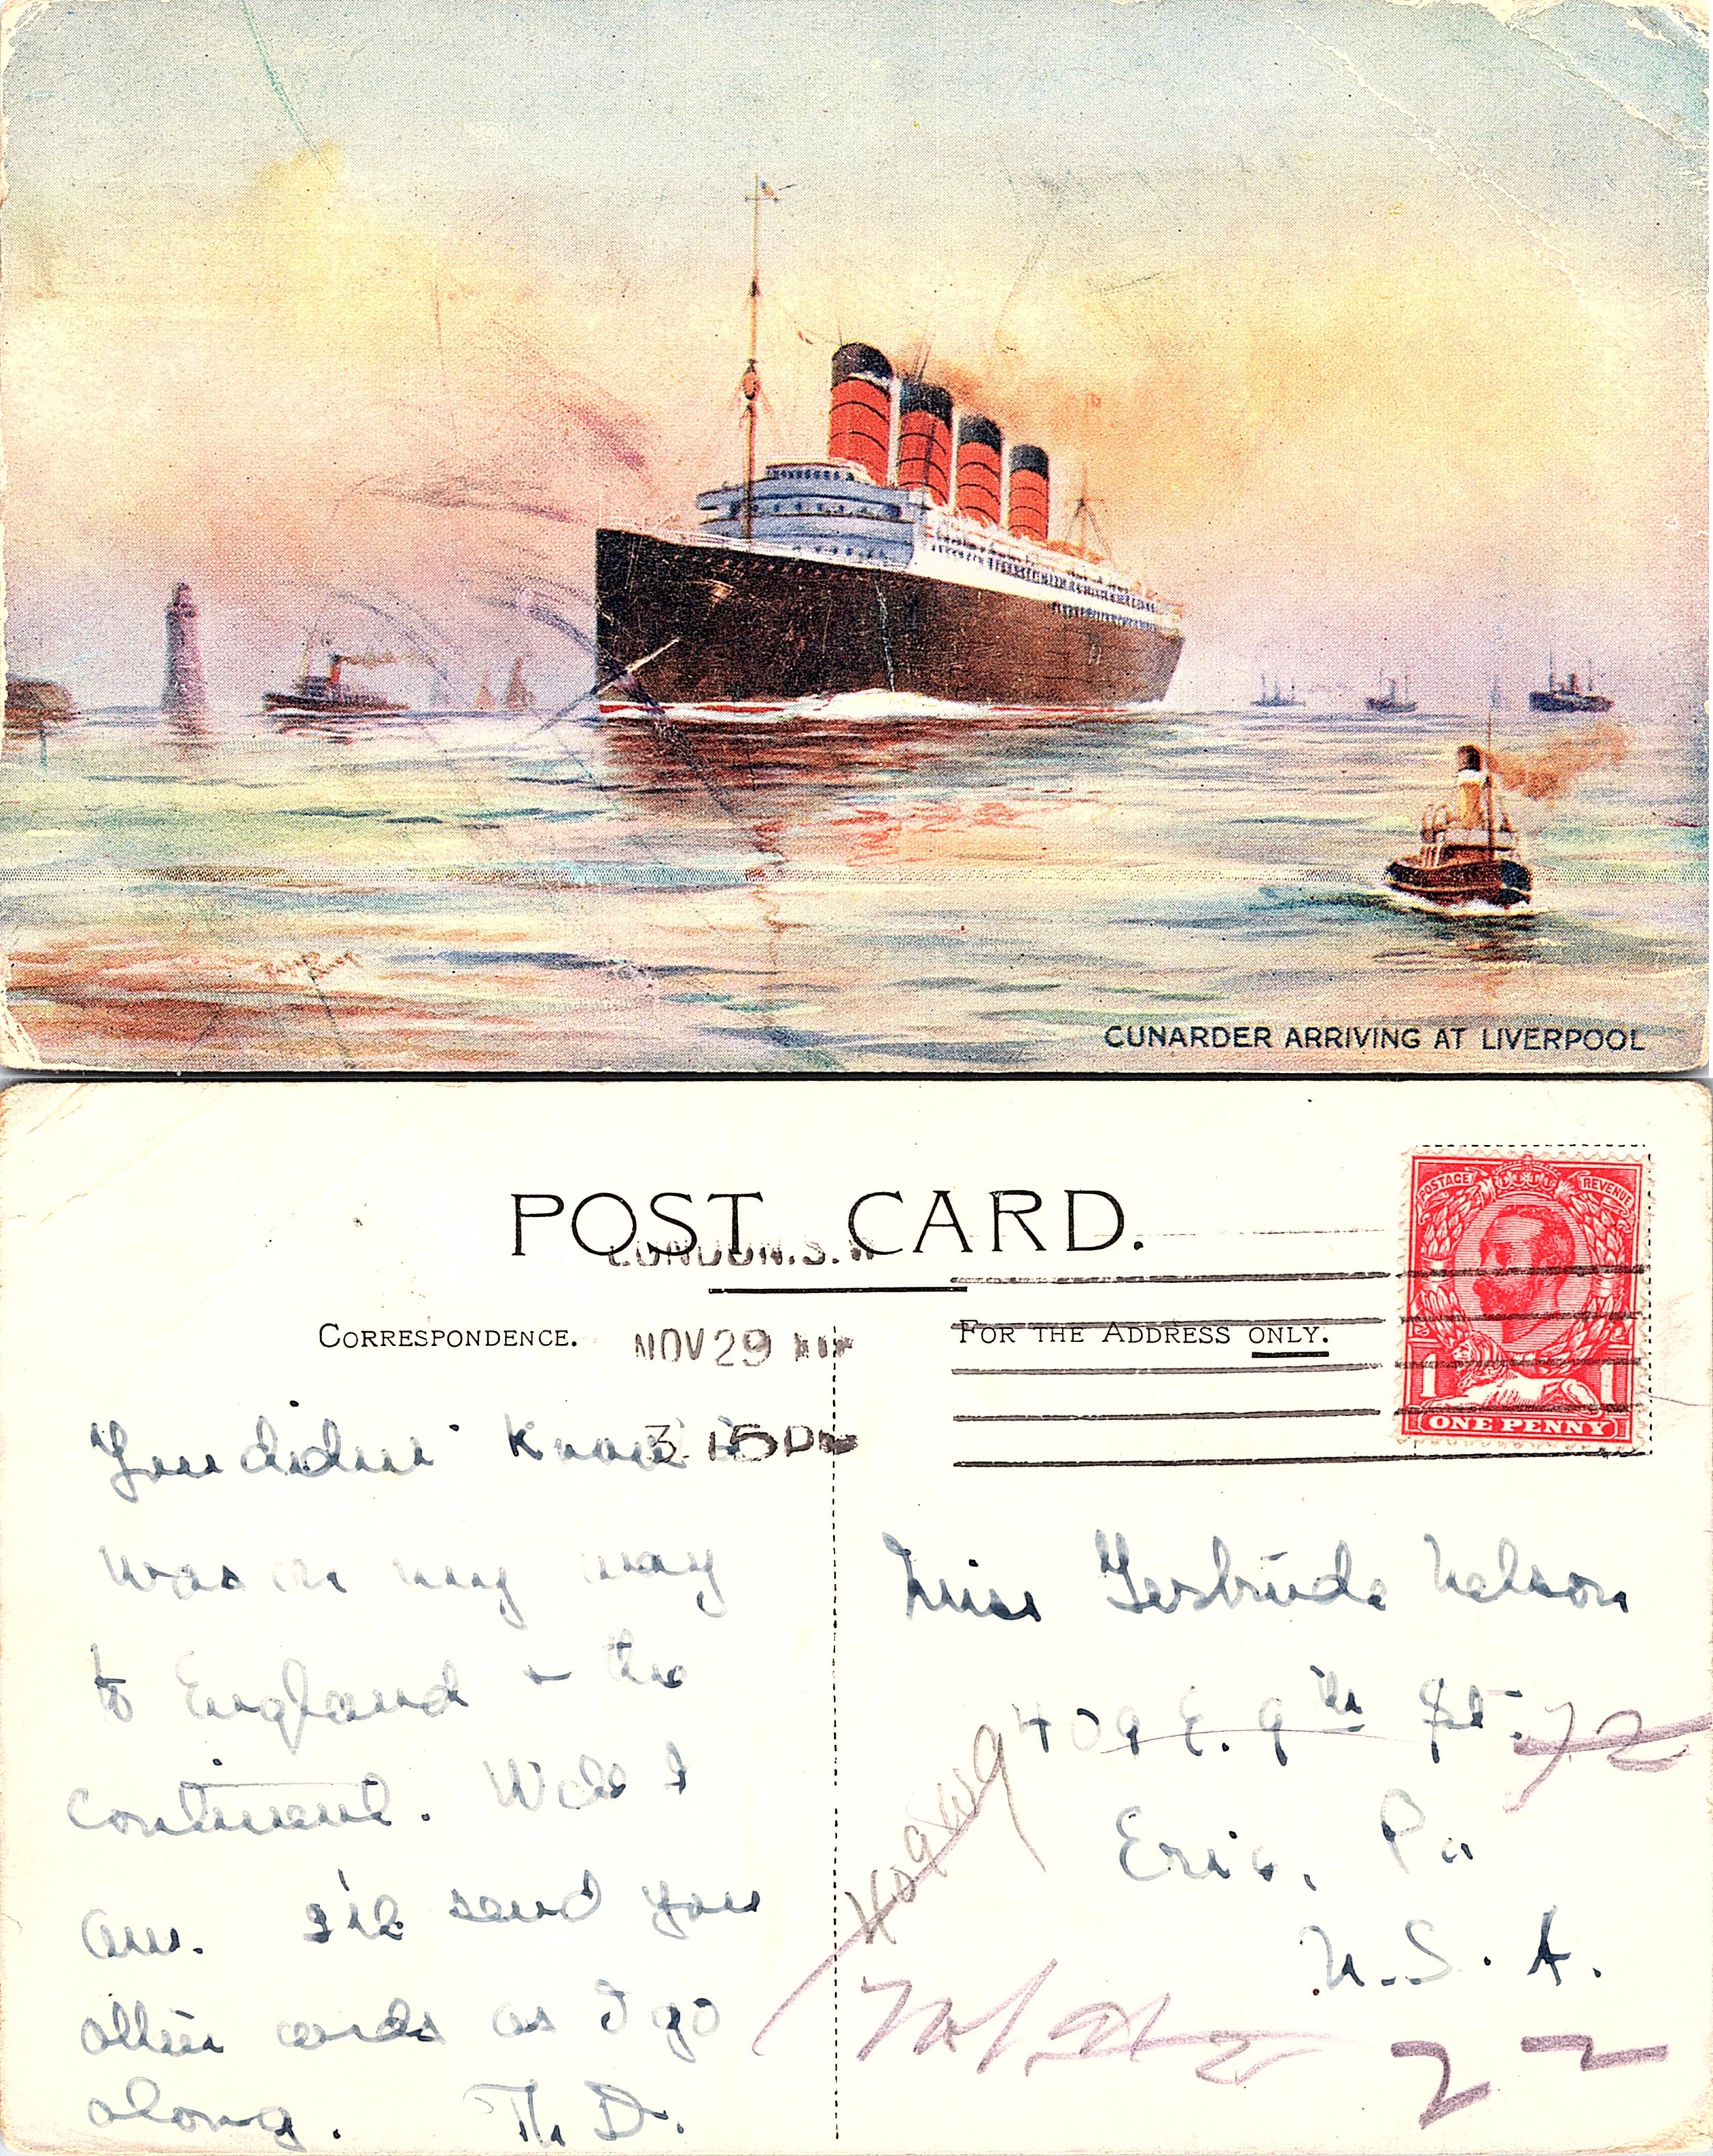 CUNARDER ARRIVING AT LIVERPOOL
POST CARD.
LONDON.S.W
CORRESPONDENCE.
NOV 29
FOR THE ADDRESS ONLY.
3 15 PM
POSTAGE REVENUE
1 1
ONE PENNY
You didn't know I
was on my way
to England & the
continent. Well I
am. I'll send you
other cards as I go
along. Th. D.
Miss Gertrude Nelson
409 E. 9th St.
Erie, Pa
U.S.A.
409 W 9